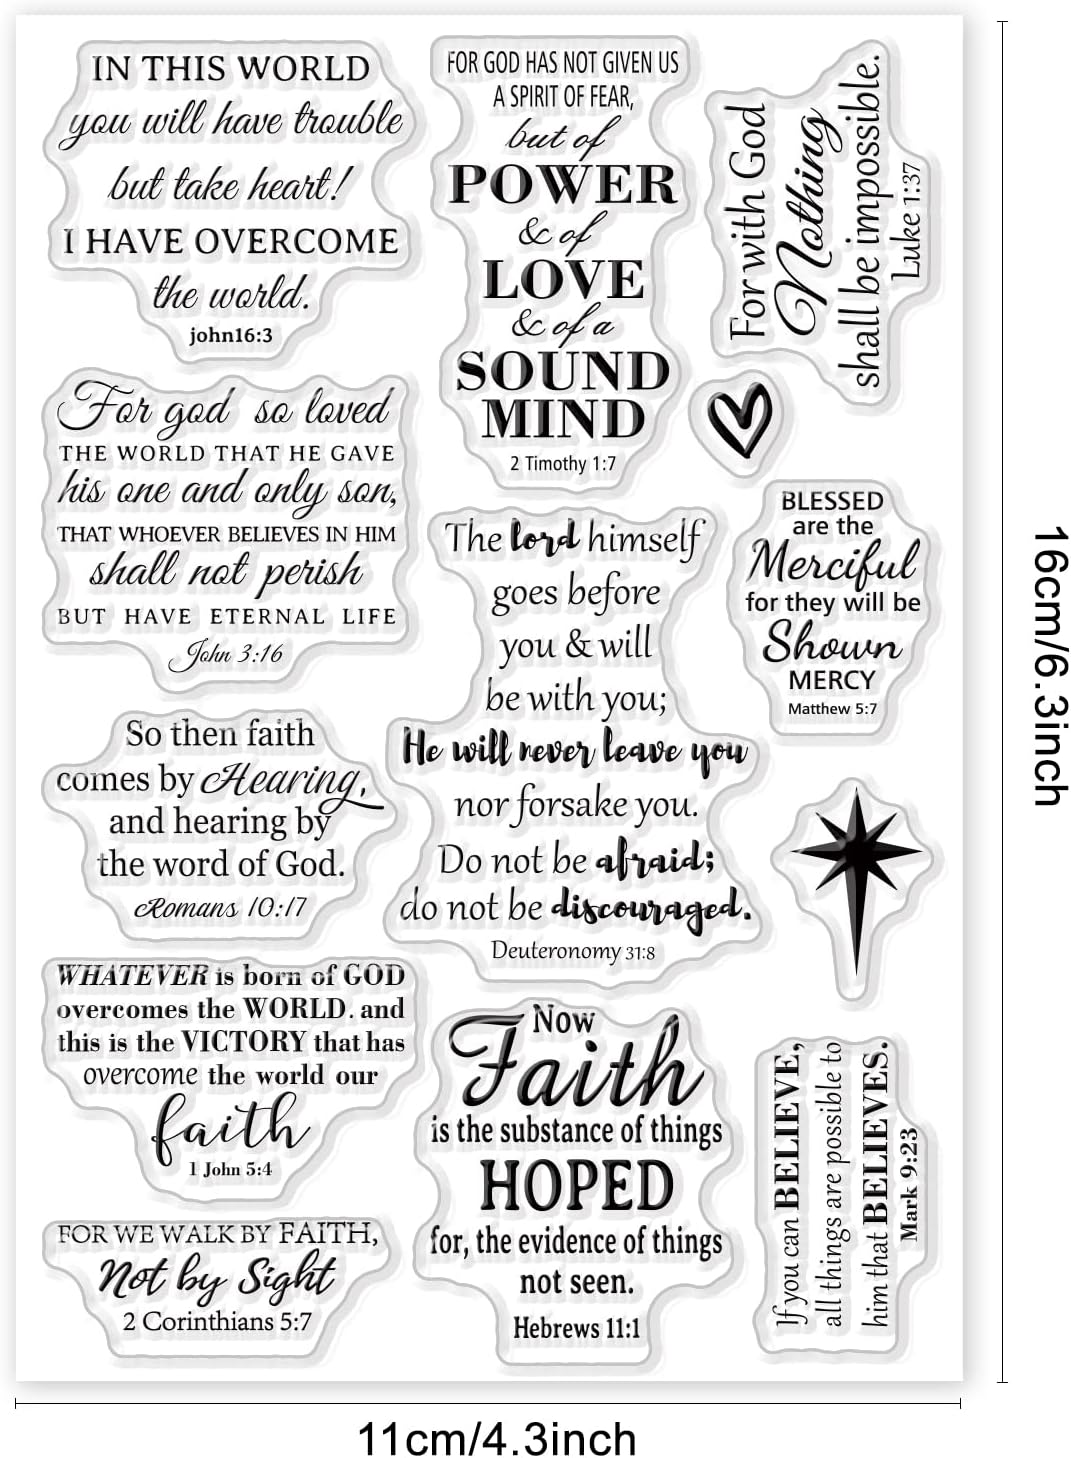 IN THIS WORLD
you will have trouble
but take heart!
I HAVE OVERCOME
the world.
john16:3
FOR GOD HAS NOT GIVEN US
A SPIRIT OF FEAR,
but of
POWER
& of
LOVE
& of a
SOUND
MIND
2 Timothy 1:7
For with God
Nothing
shall be impossible.
Luke 1:37
For god so loved
THE WORLD THAT HE GAVE
his one and only son,
THAT WHOEVER BELIEVES IN HIM
shall not perish
BUT HAVE ETERNAL LIFE
John 3:16
The lord himself
goes before
you & will
be with you;
He will never leave you
nor forsake you.
Do not be afraid;
do not be discouraged.
Deuteronomy 31:8
BLESSED
are the
Merciful
for they will be
Shown
MERCY
Matthew 5:7
So then faith
comes by Hearing,
and hearing by
the word of God.
Romans 10:17
WHATEVER is born of GOD
overcomes the WORLD. and
this is the VICTORY that has
overcome the world our
faith
1 John 5:4
Now
Faith
is the substance of things
HOPED
for, the evidence of things
not seen.
Hebrews 11:1
If you can BELIEVE,
all things are possible to
him that BELIEVES.
Mark 9:23
FOR WE WALK BY FAITH,
Not by Sight
2 Corinthians 5:7
16cm/6.3inch
11cm/4.3inch